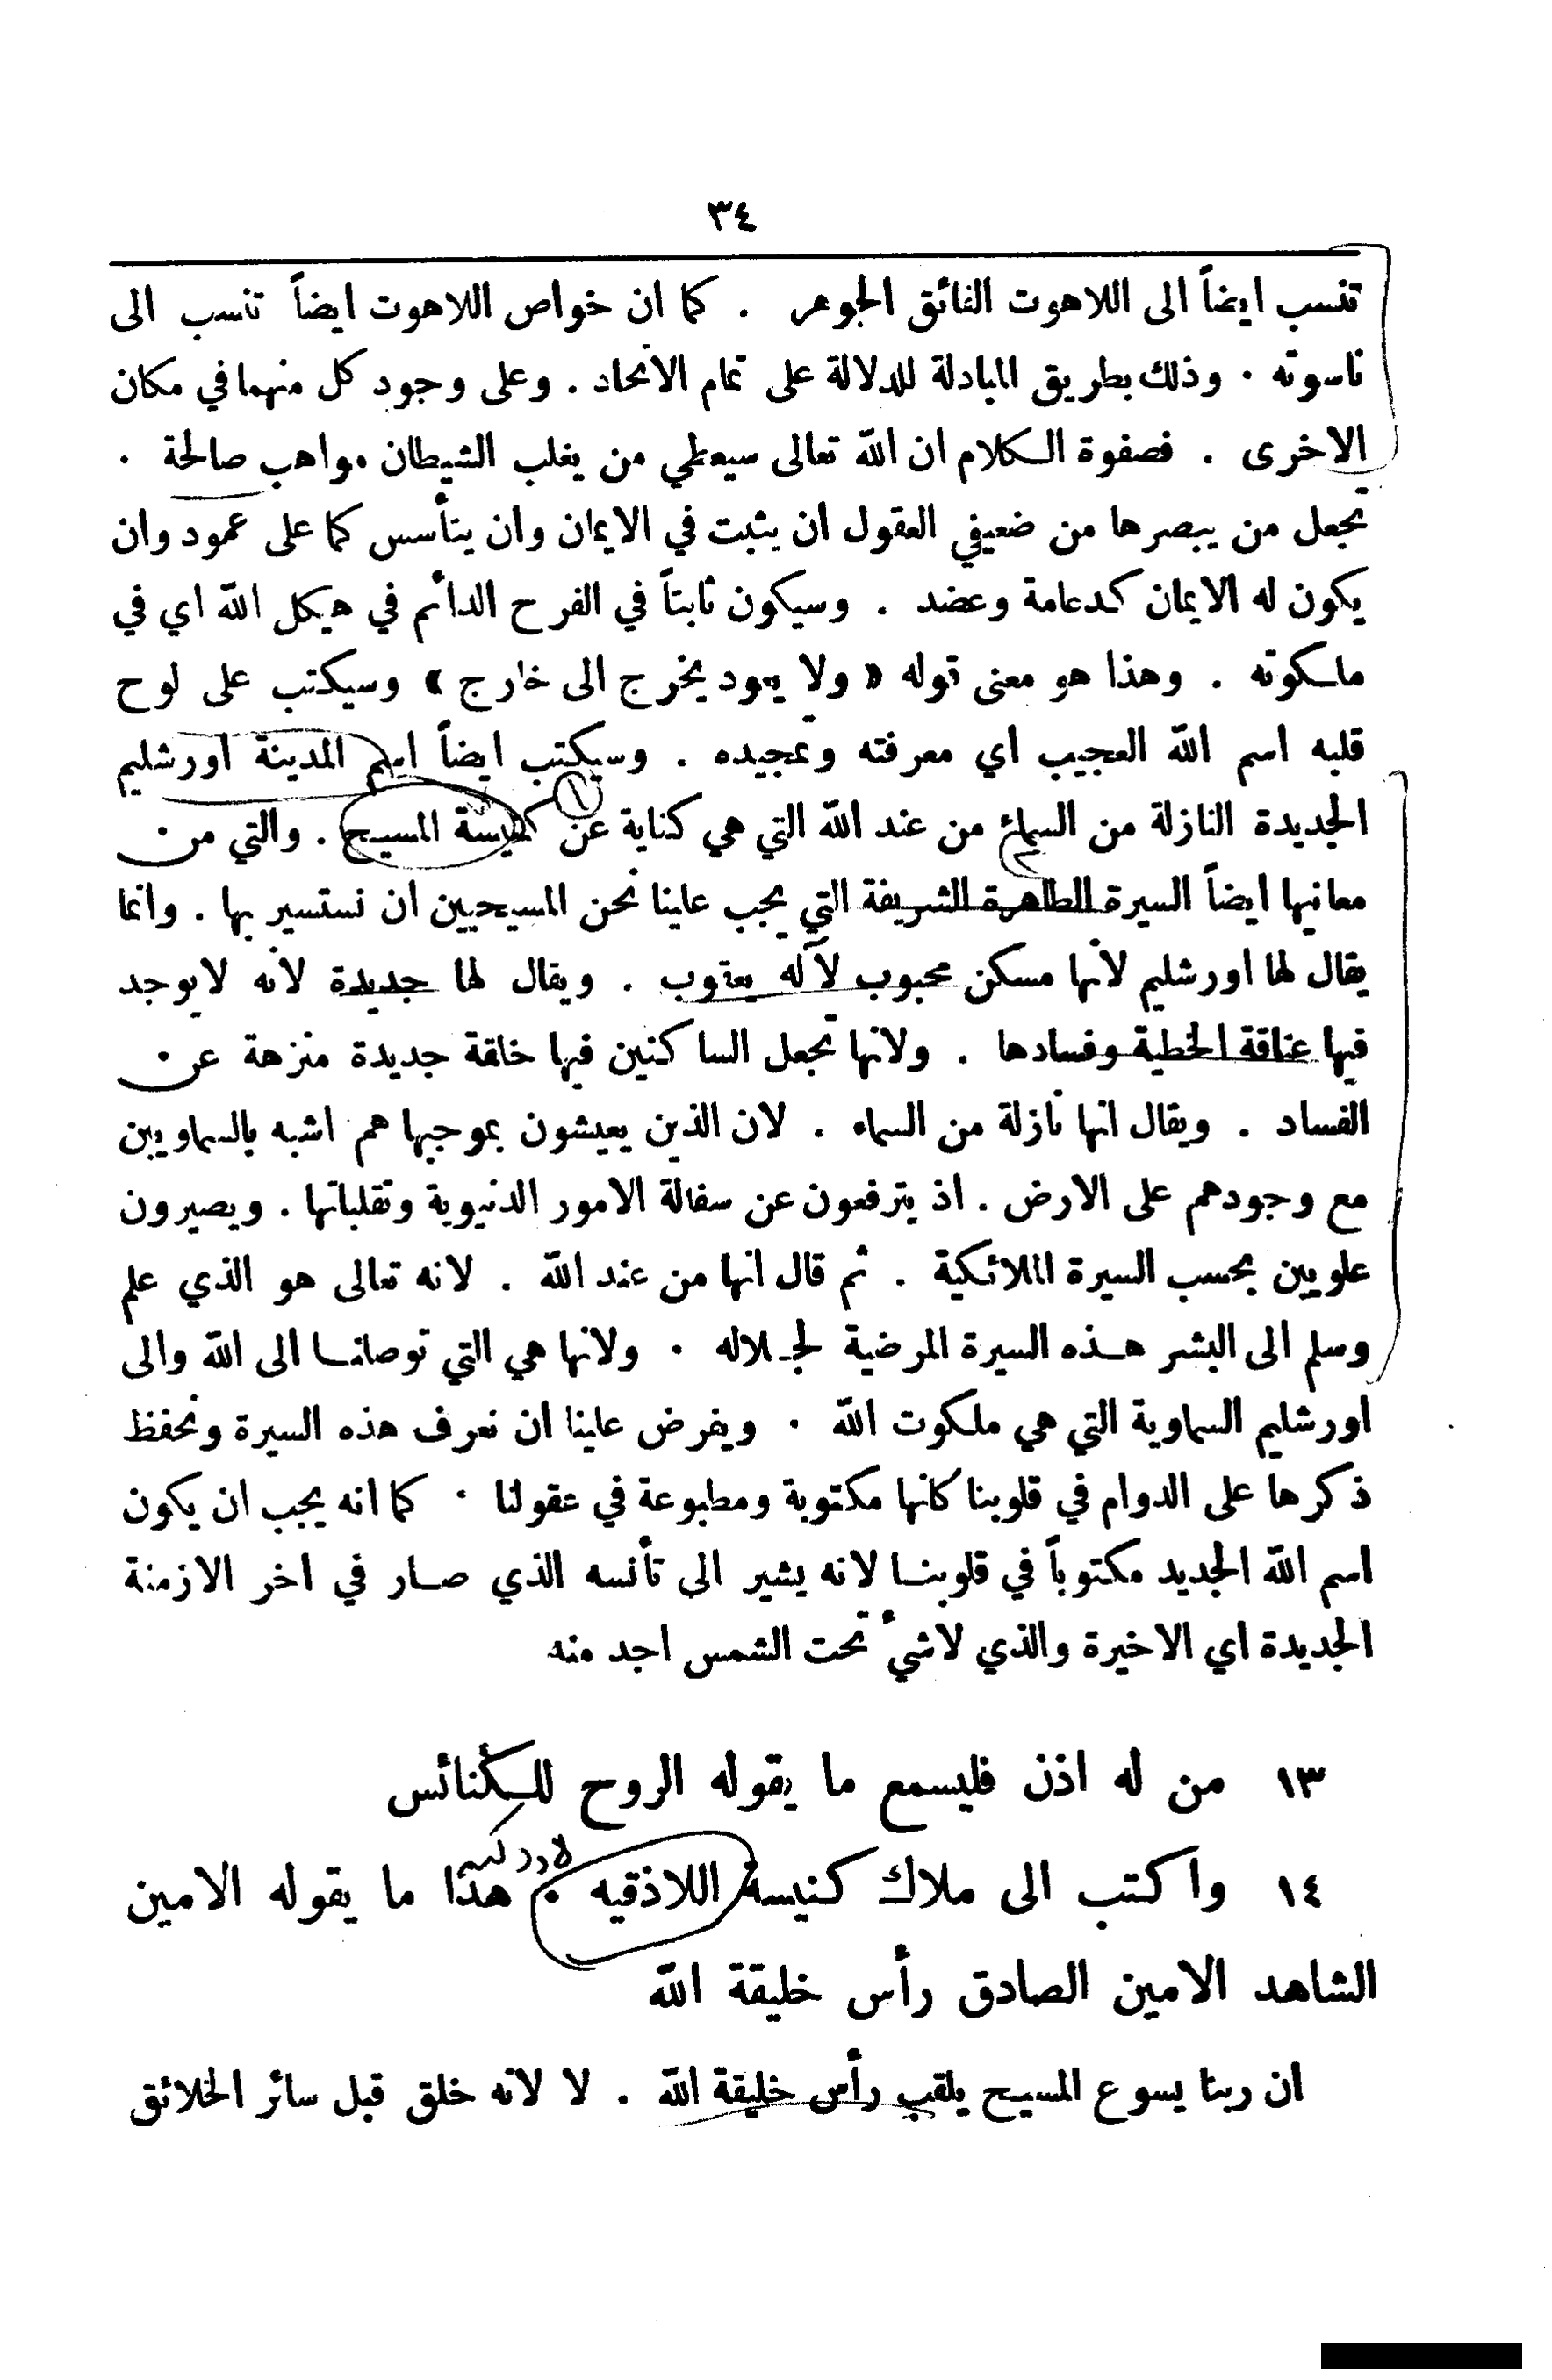 ٣٤
تنسب ايضاً الى اللاهوت الفائق الجوهر . كما ان خواص اللاهوت ايضاً تنسب الى
ناسوته . وذلك بطريق المبادلة للدلالة على تمام الاتحاد . وعلى وجود كل منهما في مكان
الاخرى . فصفوة الكلام ان الله تعالى سيعطي من يغلب الشيطان مواهب صالحة .
تجعل من يبصرها من ضعيفي العقول ان يثبت في الايمان وان يتأسس كما على عمود وان
يكون له الايمان كدعامة وعضد . وسيكون ثابتاً في الفرح الدائم في هيكل الله اي في
ملكوته . وهذا هو معنى قوله « ولا يعود يخرج الى خارج » وسيكتب على لوح
قلبه اسم الله العجيب اي معرفته وتمجيده . وسيكتب ايضاً اسم المدينة اورشليم
الجديدة النازلة من السماء من عند الله التي هي كناية عن كنيسة المسيح . والتي من
١
٢
معانيها ايضاً السيرة الطاهرة الشريفة التي يجب علينا نحن المسيحيين ان نستسير بها . وانما
يقال لها اورشليم لأنها مسكن محبوب لآله يعقوب . ويقال لها جديدة لأنه لا يوجد
فيها عتاقة الخطية وفسادها . ولانها تجعل الساكنين فيها خلقة جديدة منزهة عن
الفساد . ويقال انها نازلة من السماء . لان الذين يعيشون بموجبها هم اشبه بالسماويين
مع وجودهم على الارض . اذ يترفعون عن سفالة الامور الدنيوية وتقلباتها . ويصيرون
علويين بحسب السيرة الملائكية . ثم قال انها من عند الله . لانه تعالى هو الذي علم
وسلم الى البشر هذه السيرة المرضية لجلاله . ولانها هي التي توصلنا الى الله والى
اورشليم السماوية التي هي ملكوت الله . ويفرض علينا ان نعرف هذه السيرة ونحفظ
ذكرها على الدوام في قلوبنا كانها مكتوبة ومطبوعة في عقولنا . كما انه يجب ان يكون
اسم الله الجديد مكتوباً في قلوبنا لانه يشير الى تأنسه الذي صار في اخر الازمنة
الجديدة اي الاخيرة والذي لا شيء تحت الشمس اجد منه
١٣ من له اذن فليسمع ما يقوله الروح للكنائس
١٤ واكتب الى ملاك كنيسة اللاذقيه . هذا ما يقوله الامين
الشاهد الامين الصادق رأس خليقة الله
ان ربنا يسوع المسيح يلقب رأس خليقة الله . لا لانه خلق قبل سائر الخلائق